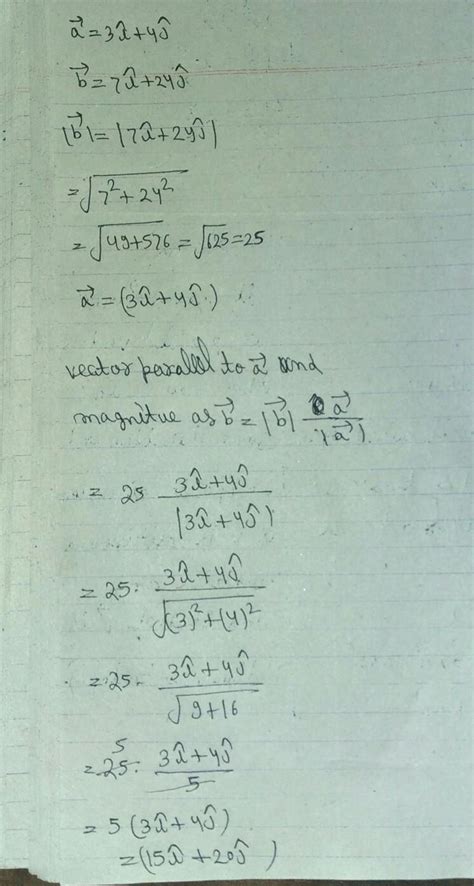 a⃗ = 3î+4ĵ
b⃗ = 7î+24ĵ
|b⃗| = |7î+24ĵ|
= √(7²+24²)
= √(49+576) = √625 = 25
a⃗ = (3î+4ĵ)
vector parallel to a⃗ and
magnitue as b⃗ = |b⃗| a⃗/|a⃗|
= 25 (3î+4ĵ)/|3î+4ĵ|
= 25. (3î+4ĵ)/√((3)²+(4)²)
= 25. (3î+4ĵ)/√(9+16)
= 5 25. (3î+4ĵ)/5
= 5 (3î+4ĵ)
= (15î+20ĵ)